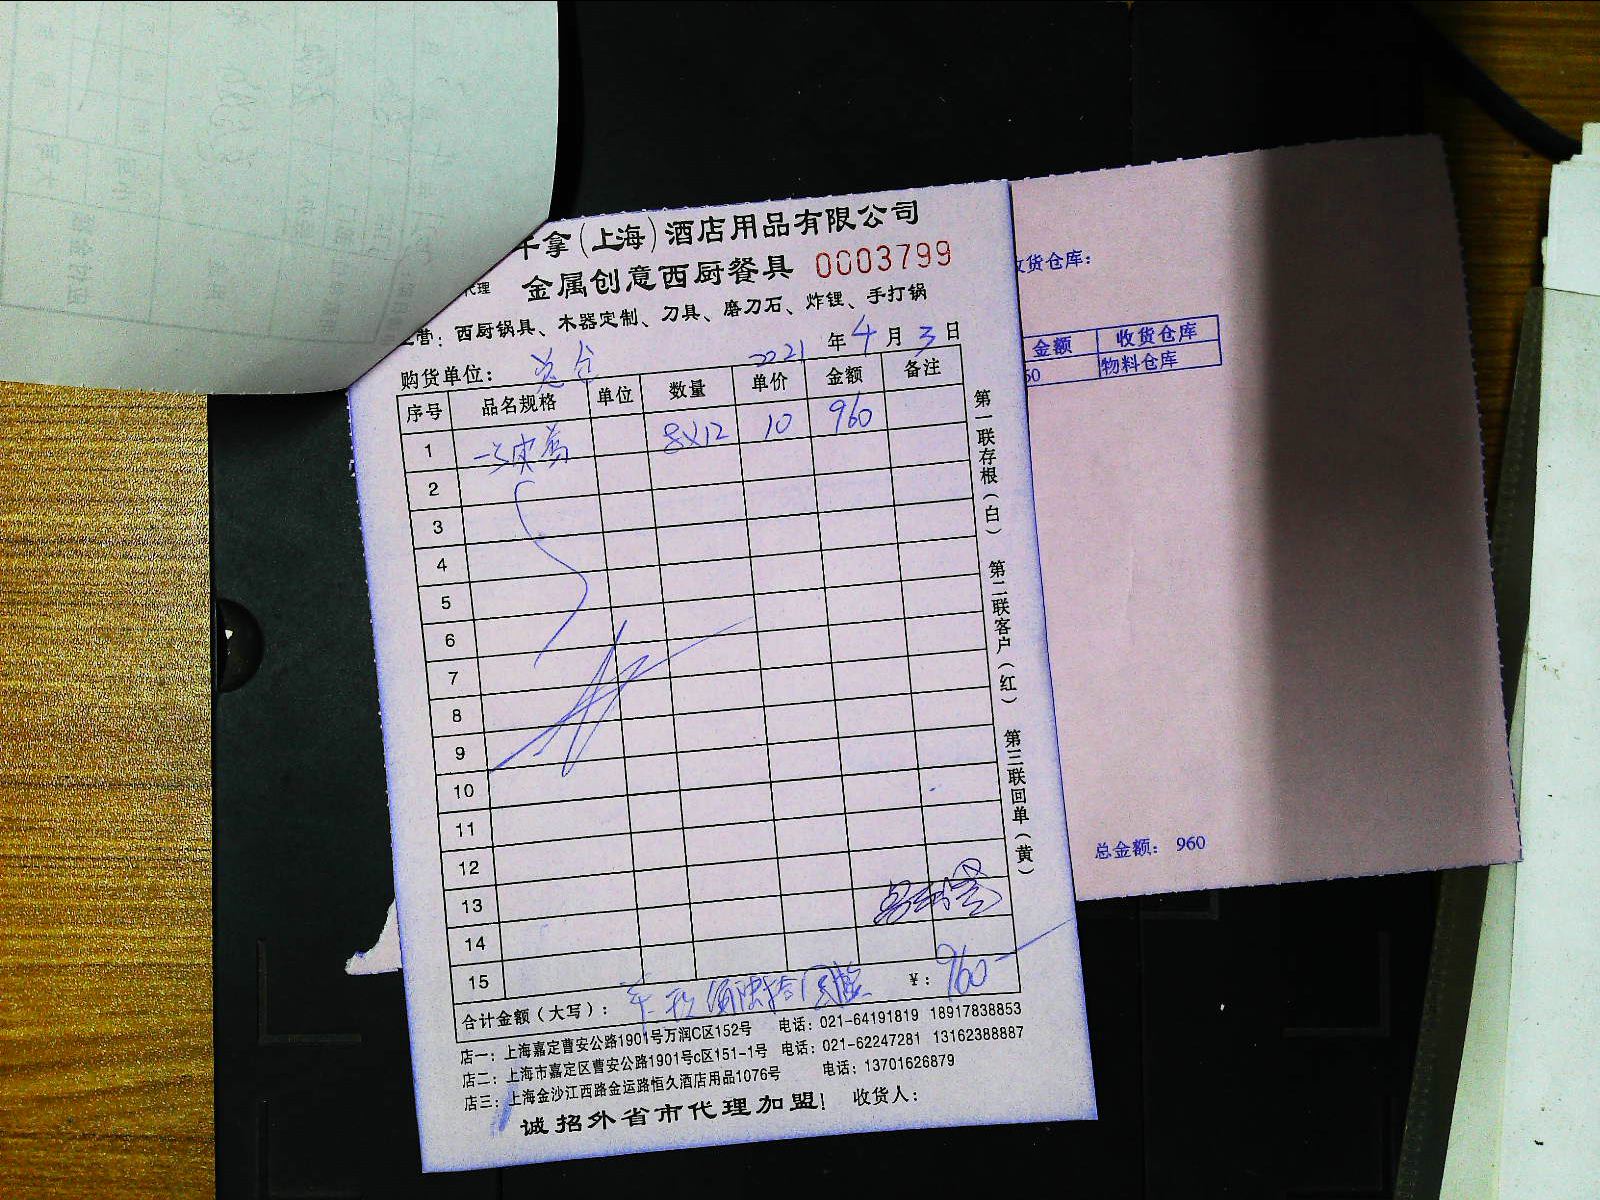 千拿(上海)酒店用品有限公司
代理 金属创意西厨餐具 0003799
营：西厨锅具、木器定制、刀具、磨刀石、炸锂、手打锅
购货单位： 2021 年 4 月 3 日
序号 品名规格 单位 数量 单价 金额 备注
1 8X12 10 960
2
3
4
5
6
7
8
9
10
11
12
13
14
15
合计金额（大写）： ¥：960
店一：上海嘉定曹安公路1901号万润C区152号 电话：021-64191819 18917838853
店二：上海市嘉定区曹安公路1901号c区151-1号 电话：021-62247281 13162388887
店三：上海金沙江西路金运路恒久酒店用品1076号 电话：13701626879
诚招外省市代理加盟! 收货人：
第一联存根（白） 第二联客户（红） 第三联回单（黄）
收货仓库：
金额 收货仓库
60 物料仓库
总金额： 960